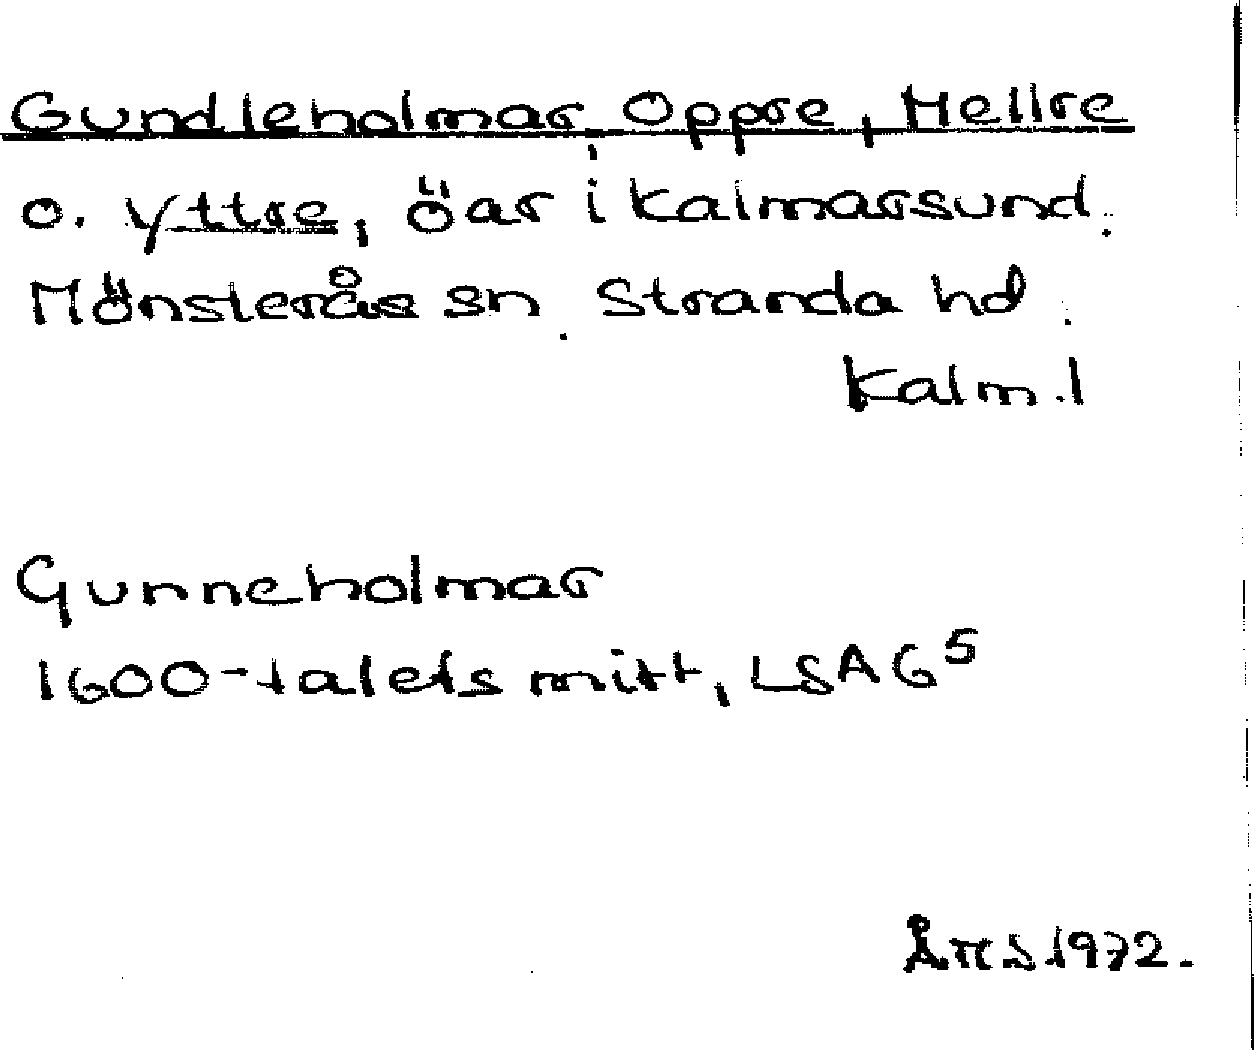 Gundleholmar, Oppre, Mellre
o. Yttre, öar i Kalmarsund.
Mönsterås sn. Stranda hd.
Kalm. l
Gunneholmar
1600-talets mitt, LSA G5
1972.